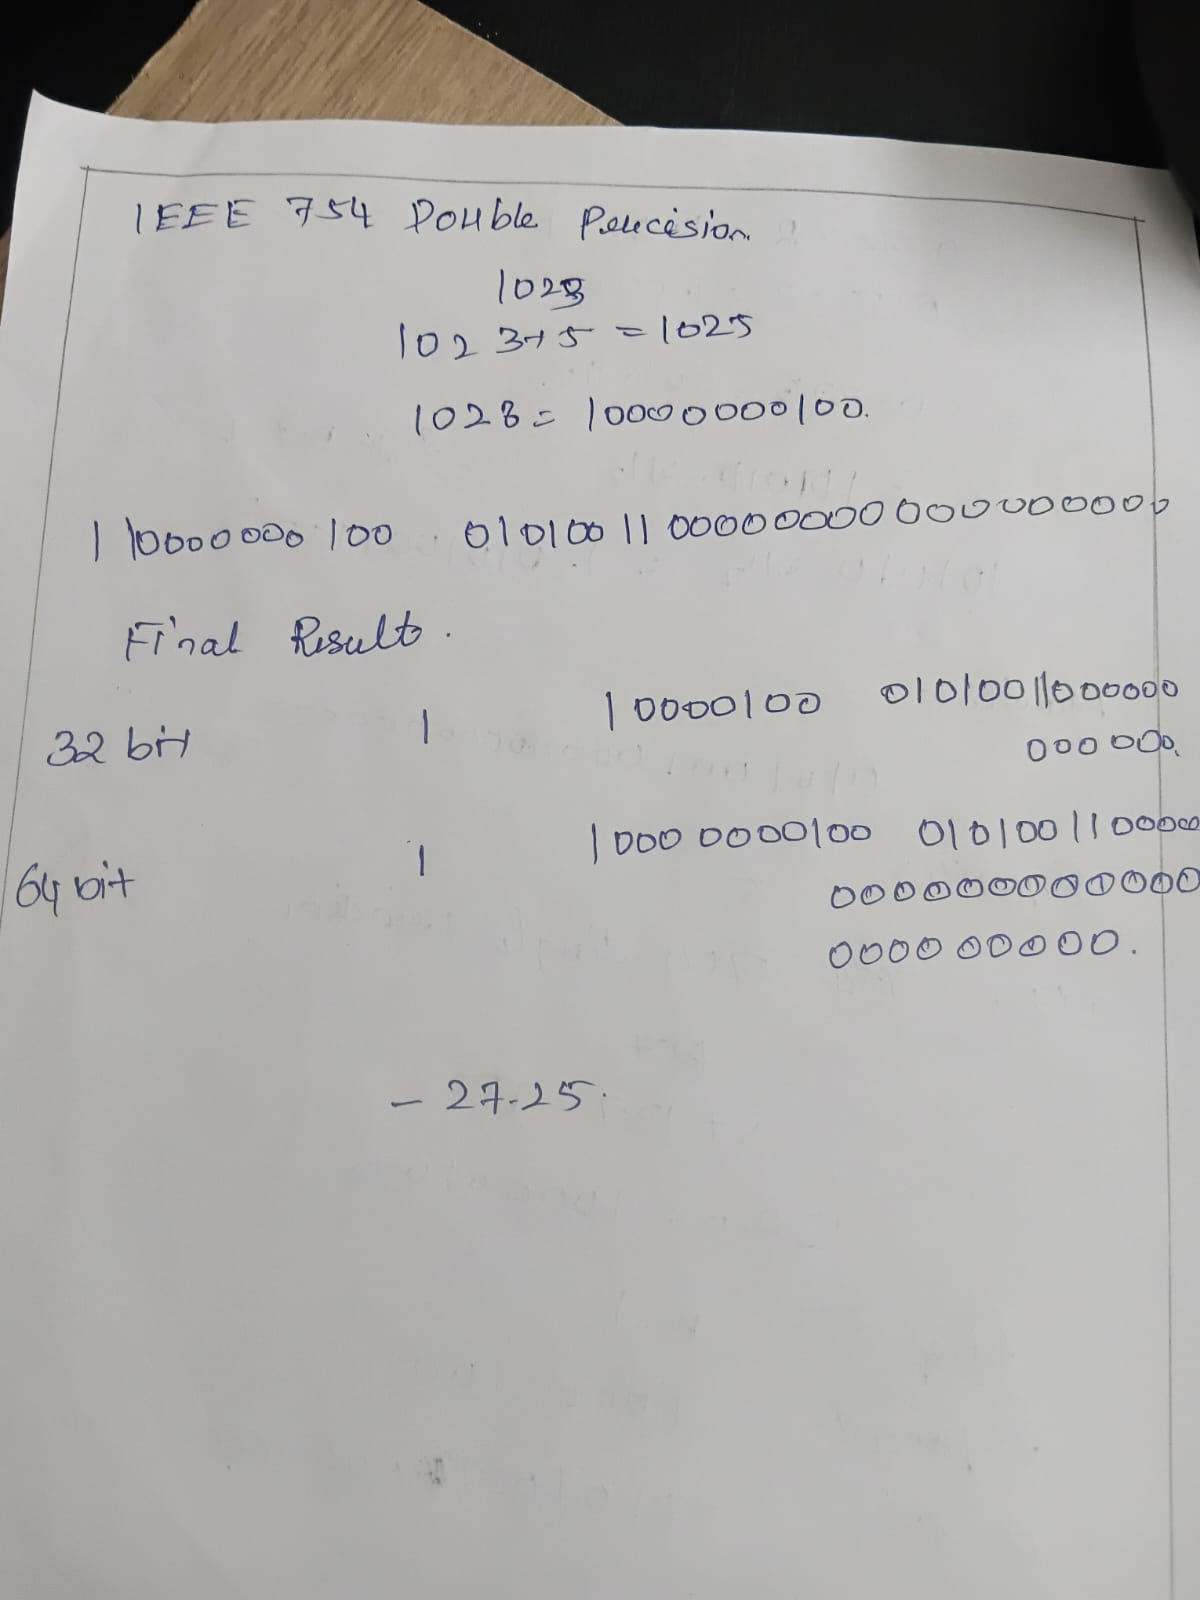 IEEE 754 Double Precision
1023
1023+5 = 1025
1028 = 10000000100.
1 10000000100 . 010100110000000000000000000
Final Result .
32 bit 1 10000100 01010011000000
000000.
64 bit 1 10000000100 0101001100000
000000000000
000000000.
- 27.25.